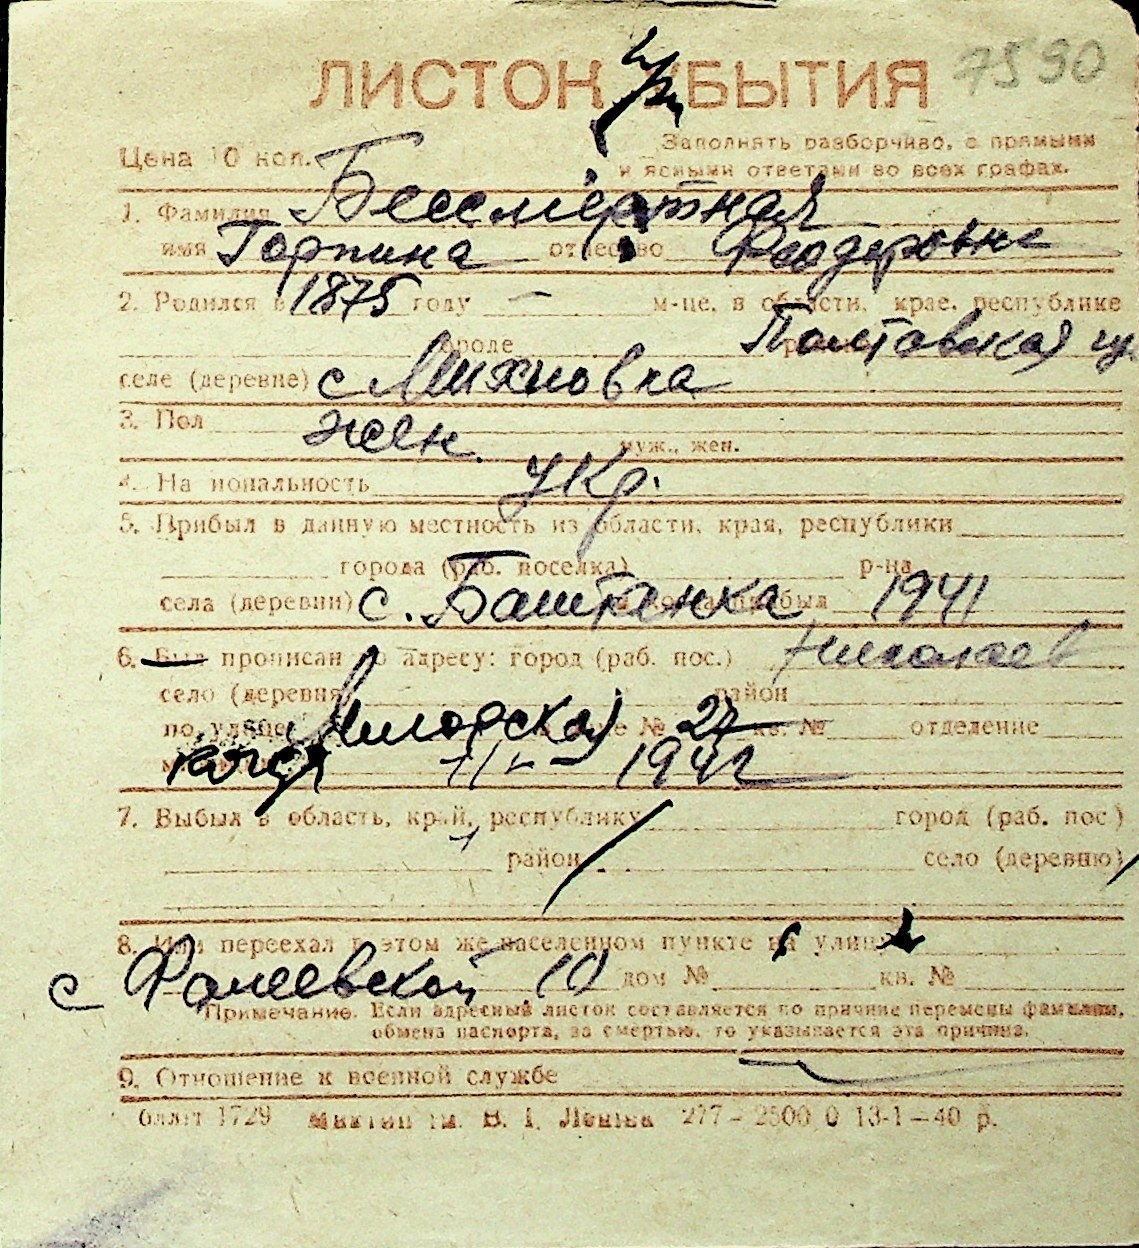 ЛИСТОК УБЫТИЯ 7590
Цена 10 коп. Заполнять разборчиво, с прямыми
и ясными ответами во всех графах.
1. Фамилия Бессмертная
имя Горпина отчество Феодоровна
2. Родился в 1875 году — м-це, в области, крае, республике
городе Полтавская
селе (деревне) с Михновка
3. Пол жен. муж., жен.
4. Национальность укр.
5. Прибыл в данную местность из области, края, республики
города (раб. поселка) р-на
села (деревни) с. Баштанка прибыл 1941
6. Был прописан по адресу: город (раб. пос.) Николаев
село (деревня) район
по улице № 27 кв. № отделение
1942
7. Выбыл в область, край, республику город (раб. пос.)
район село (деревню)
8. Или переехал в этом же населенном пункте на улицу
с Фалеевской 10 дом № кв. №
Примечание. Если адресный листок составляется по причине перемены фамилии,
обмена паспорта, за смертью, то указывается эта причина.
9. Отношение к военной службе
1729 В. І. Леніна 277—2500 0 13-1—40 р.